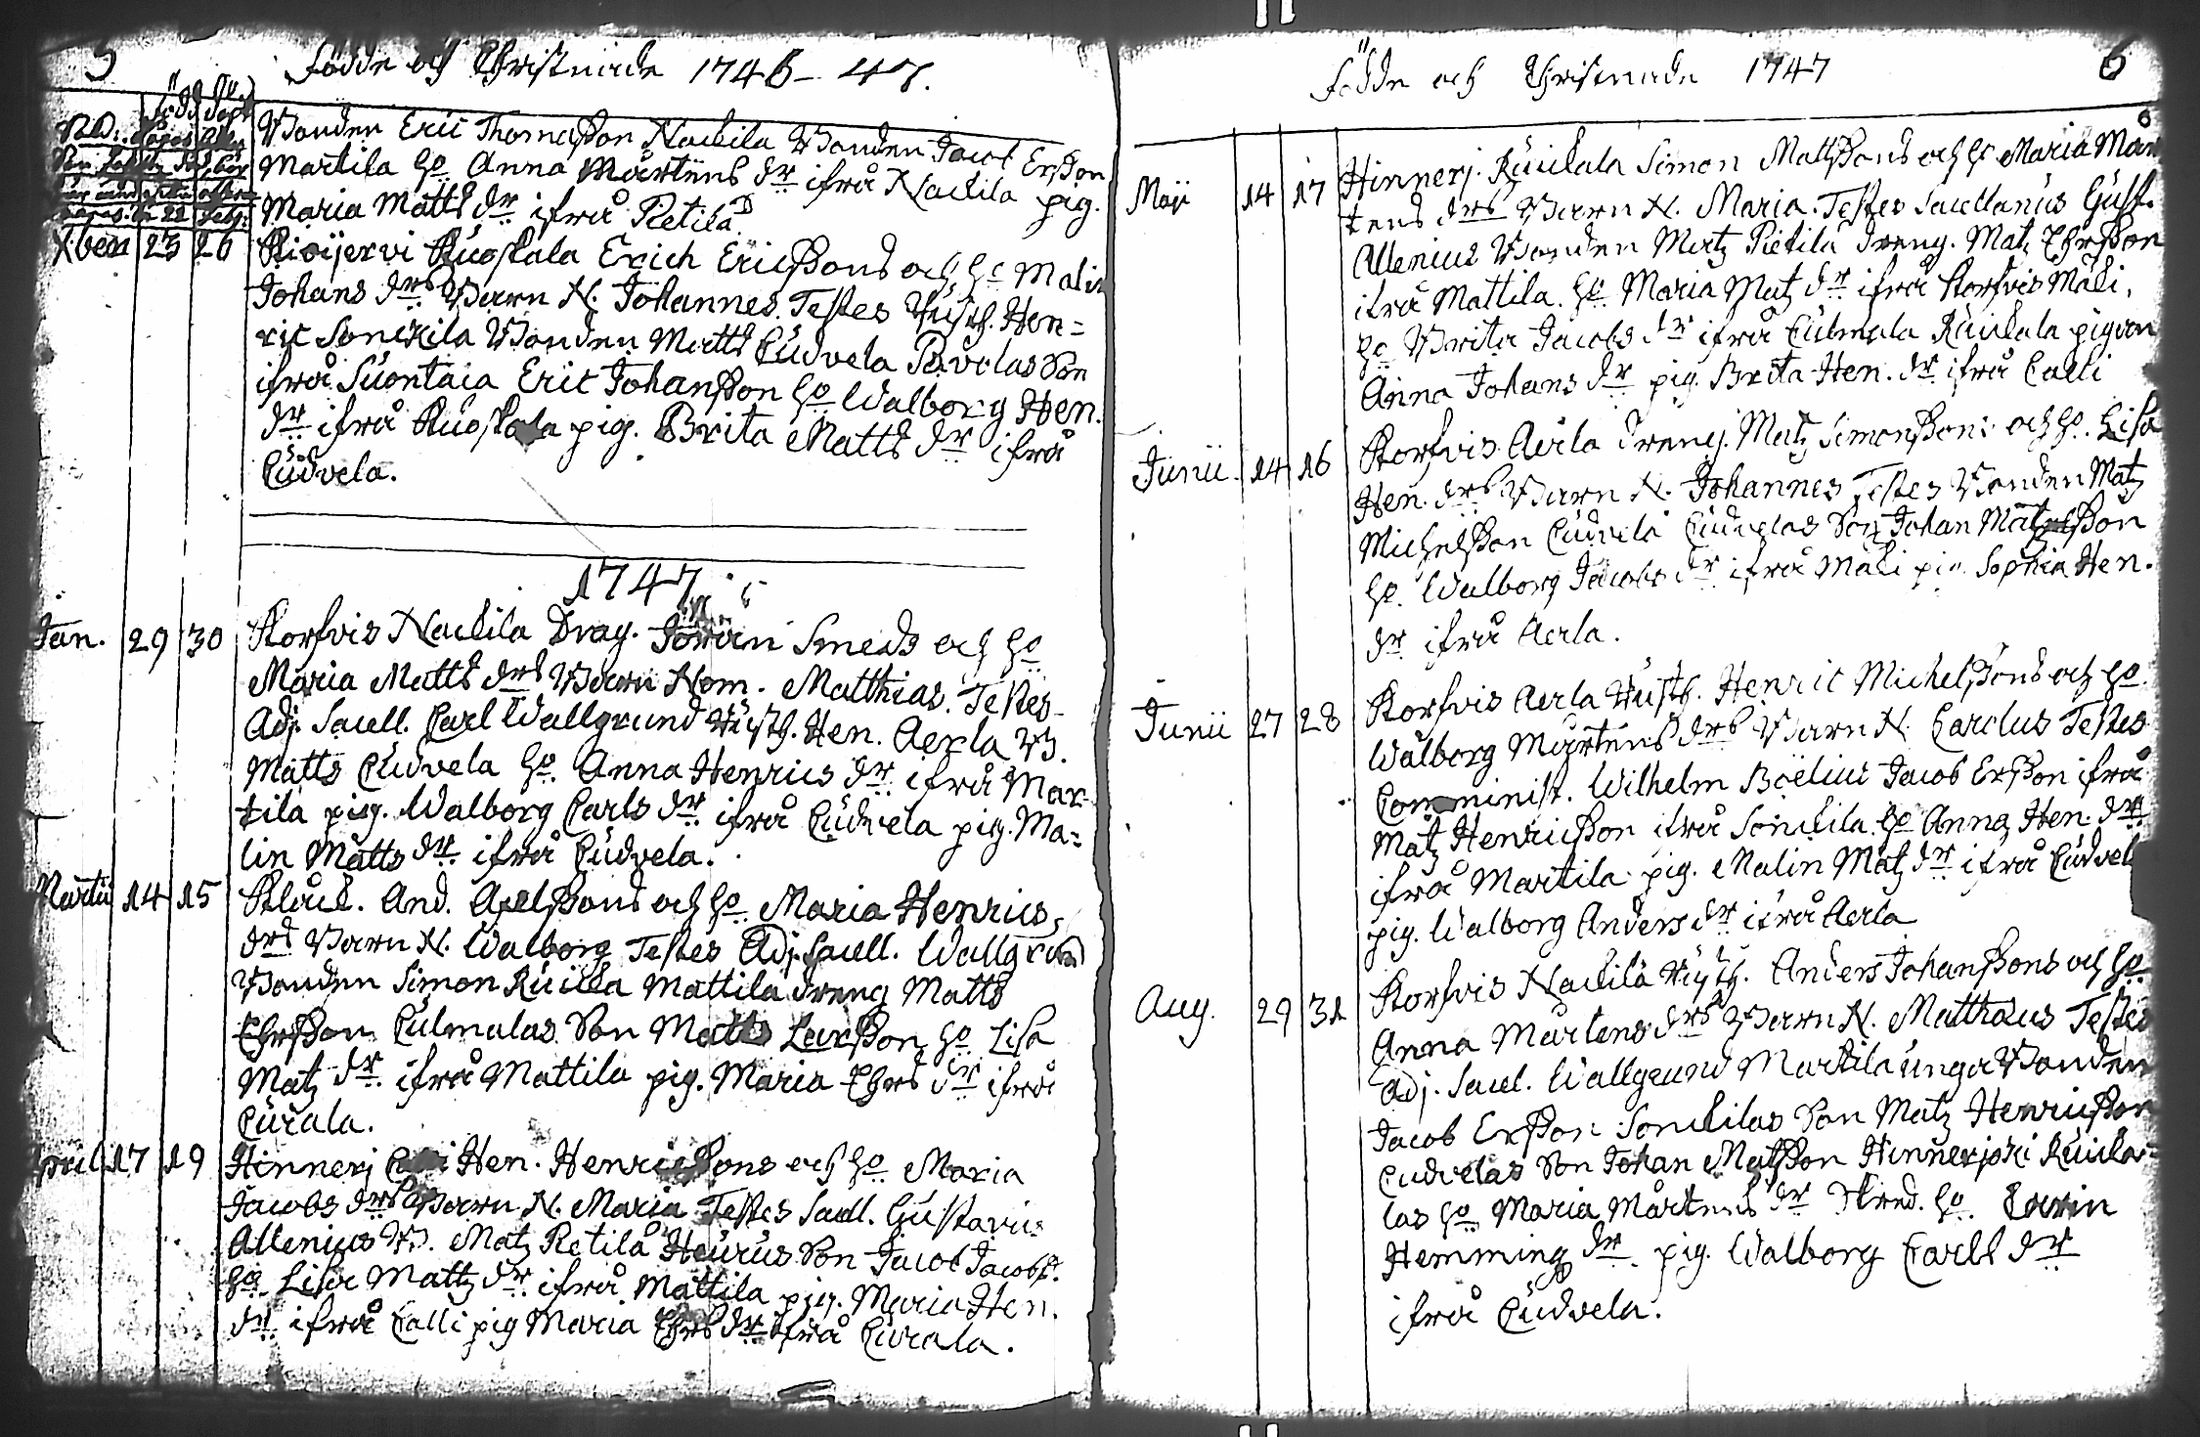 5
Födde och Christnade 1746-47.
Född Döpt
Bonden Eric Thomasson Nackila Bonden Jacob Ersson
Martila ho. Anna Mårtens dr. ifrå Nackila pig.
Maria Matts dr. ifrå Pietilä
Xben 25 26 Kioijervi Kuoskala Erich Ericssons och ho Malin
Johans drs. Barn N. Johannes. Testes Rusth. Hen=
ric Sonckila Bonden Matts Cudvela Pavolas Son
ifrå Suontaca Eric Johansson ho Walborg Hen.
dr. ifrå Kuoskala pig. Brita Matts dr. ifrå
Cudvela.
1747.
Jan. 29 30 Korfvis Nackila Drag. Jöran Smeds och ho
Maria Matts drs Barn Nom. Matthias. Testes
Adj. Sacell. Carl Wallgrund Rusth. Hen. Aerla B.
Matts Cudvela ho. Anna Henrics dr. ifrå Mar-
tila pig. Walborg Carls dr. ifrå Cudvela pig. Ma=
lin Matts dr. ifrå Cudvela.
Martii 14 15 Klåck. And. Axelssons och ho Maria Henrics
drs Barn N. Walborg Testes Adj. Sacell. Wallgrund
Bonden Simon Kuickla Mattila dreng Matts
Ehrsson Culmalas Son Matts Larsson ho Lisa
Matz dr. ifrå Mattila pig. Maria Ehrs dr ifrå
Curala.
April 17 19 Hinnerj Hen. Henricssons och ho Maria
Jacobs drs Barn N. Maria Testes Sacell. Gustavus
Allenius B. Matz Pietilä Son Jacob Jacobss.
ho. Lisa Mattz dr. ifrå Mattila pig. Maria Hen.
dr. ifrå Calli pig Maria Ehrs dr ifrå Curala.
Födde och Christnade 1747
6
Maji 14 17 Hinnerj. Kuickala Simon Matssons och ho Maria Mår
tens drs Barn N. Maria. Testes Sacellanus Gust.
Allenius Bonden Matz Pietilä dreng. Matz Ehrsson
ifrå Mattila. ho. Maria Matz dr ifrå Korfvis Mäki,
ho Brita Jacobs dr ifrå Culmala Kuickala pigan
Anna Johans dr pig. Brita Hen. dr. ifrå Calli
Junii 14 16 Korfvis Aerla dreng. Matz Simonssons och ho. Lisa
Hen. drs Barn N. Johannes Testes Bonden Matz
Michelsson Cudvela Cudvelas Son Johan Matzsson
ho. Walborg Jacobs dr ifrå Mäki pig. Sophia Hen.
dr ifrå Aerla.
Junii 27 28 Korfvis Aerla Rusth. Henric Michelssons och ho.
Walborg Mårtens drs Barn N. Carolus Testes
Comminist. Wilhelm Boëlius Jacob Ersson ifrå
Matz Henricsson ifrå Sonckila ho Anna Hen. dr
ifrå Martila pig. Malin Matz dr ifrå Cudvel
pig. Walborg Anders dr ifrå Aerla
Aug. 29 31 Korfvis Nackila Rusth. Anders Johanssons och ho
Anna Mårtens drs Barn N. Matthæus Testes
Adj. Sacel. Wallgrund Martila unga Bonden
Jacob Ersson Sonckilas Son Matz Henricsson
Cudvelas Son Johan Matsson Hinnerjoki Kuicka-
las ho Maria Mårtens dr Skred. ho. Carin
Hemming dr pig. Walborg Carls dr
ifrå Cudvela.